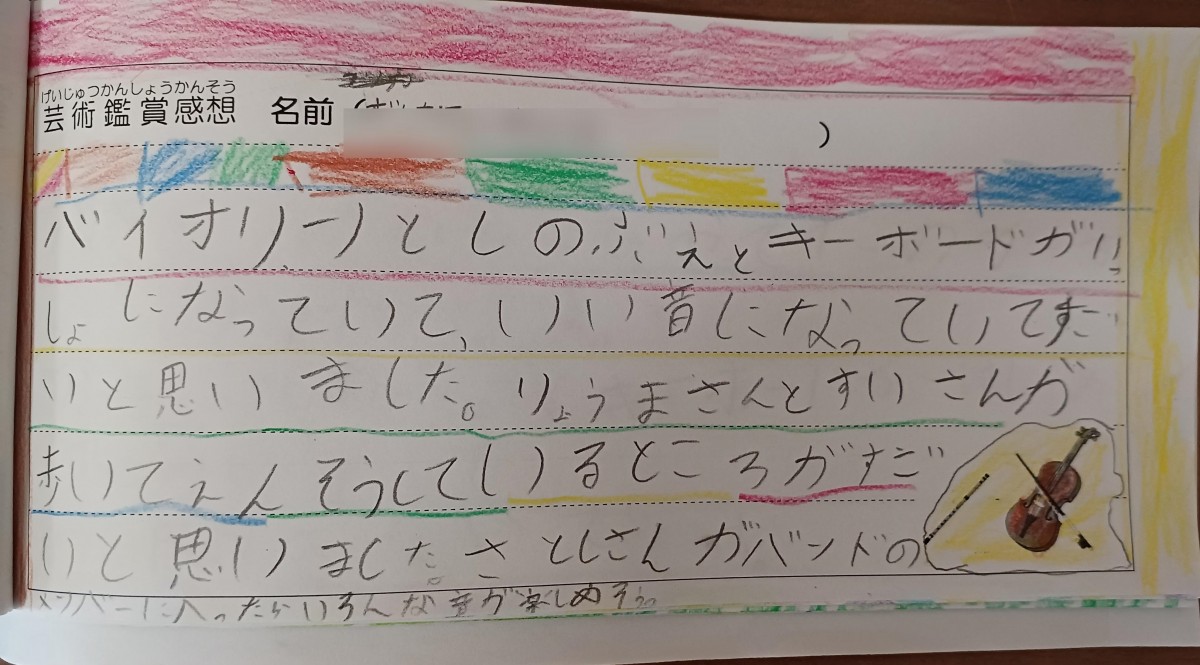 げいじゅつかんしょうかんそう
芸術鑑賞感想 名前 ( )
バイオリーノとしのぶえとキーボードがいっ
しょになっていて、いい音になっていてすご
いと思いました。りょうまさんとすいさんが
歩いてえんそうしているところがすご
いと思いました。さとしさんがバンドの
メンバーに入ったらいろんな音が楽しめそう。